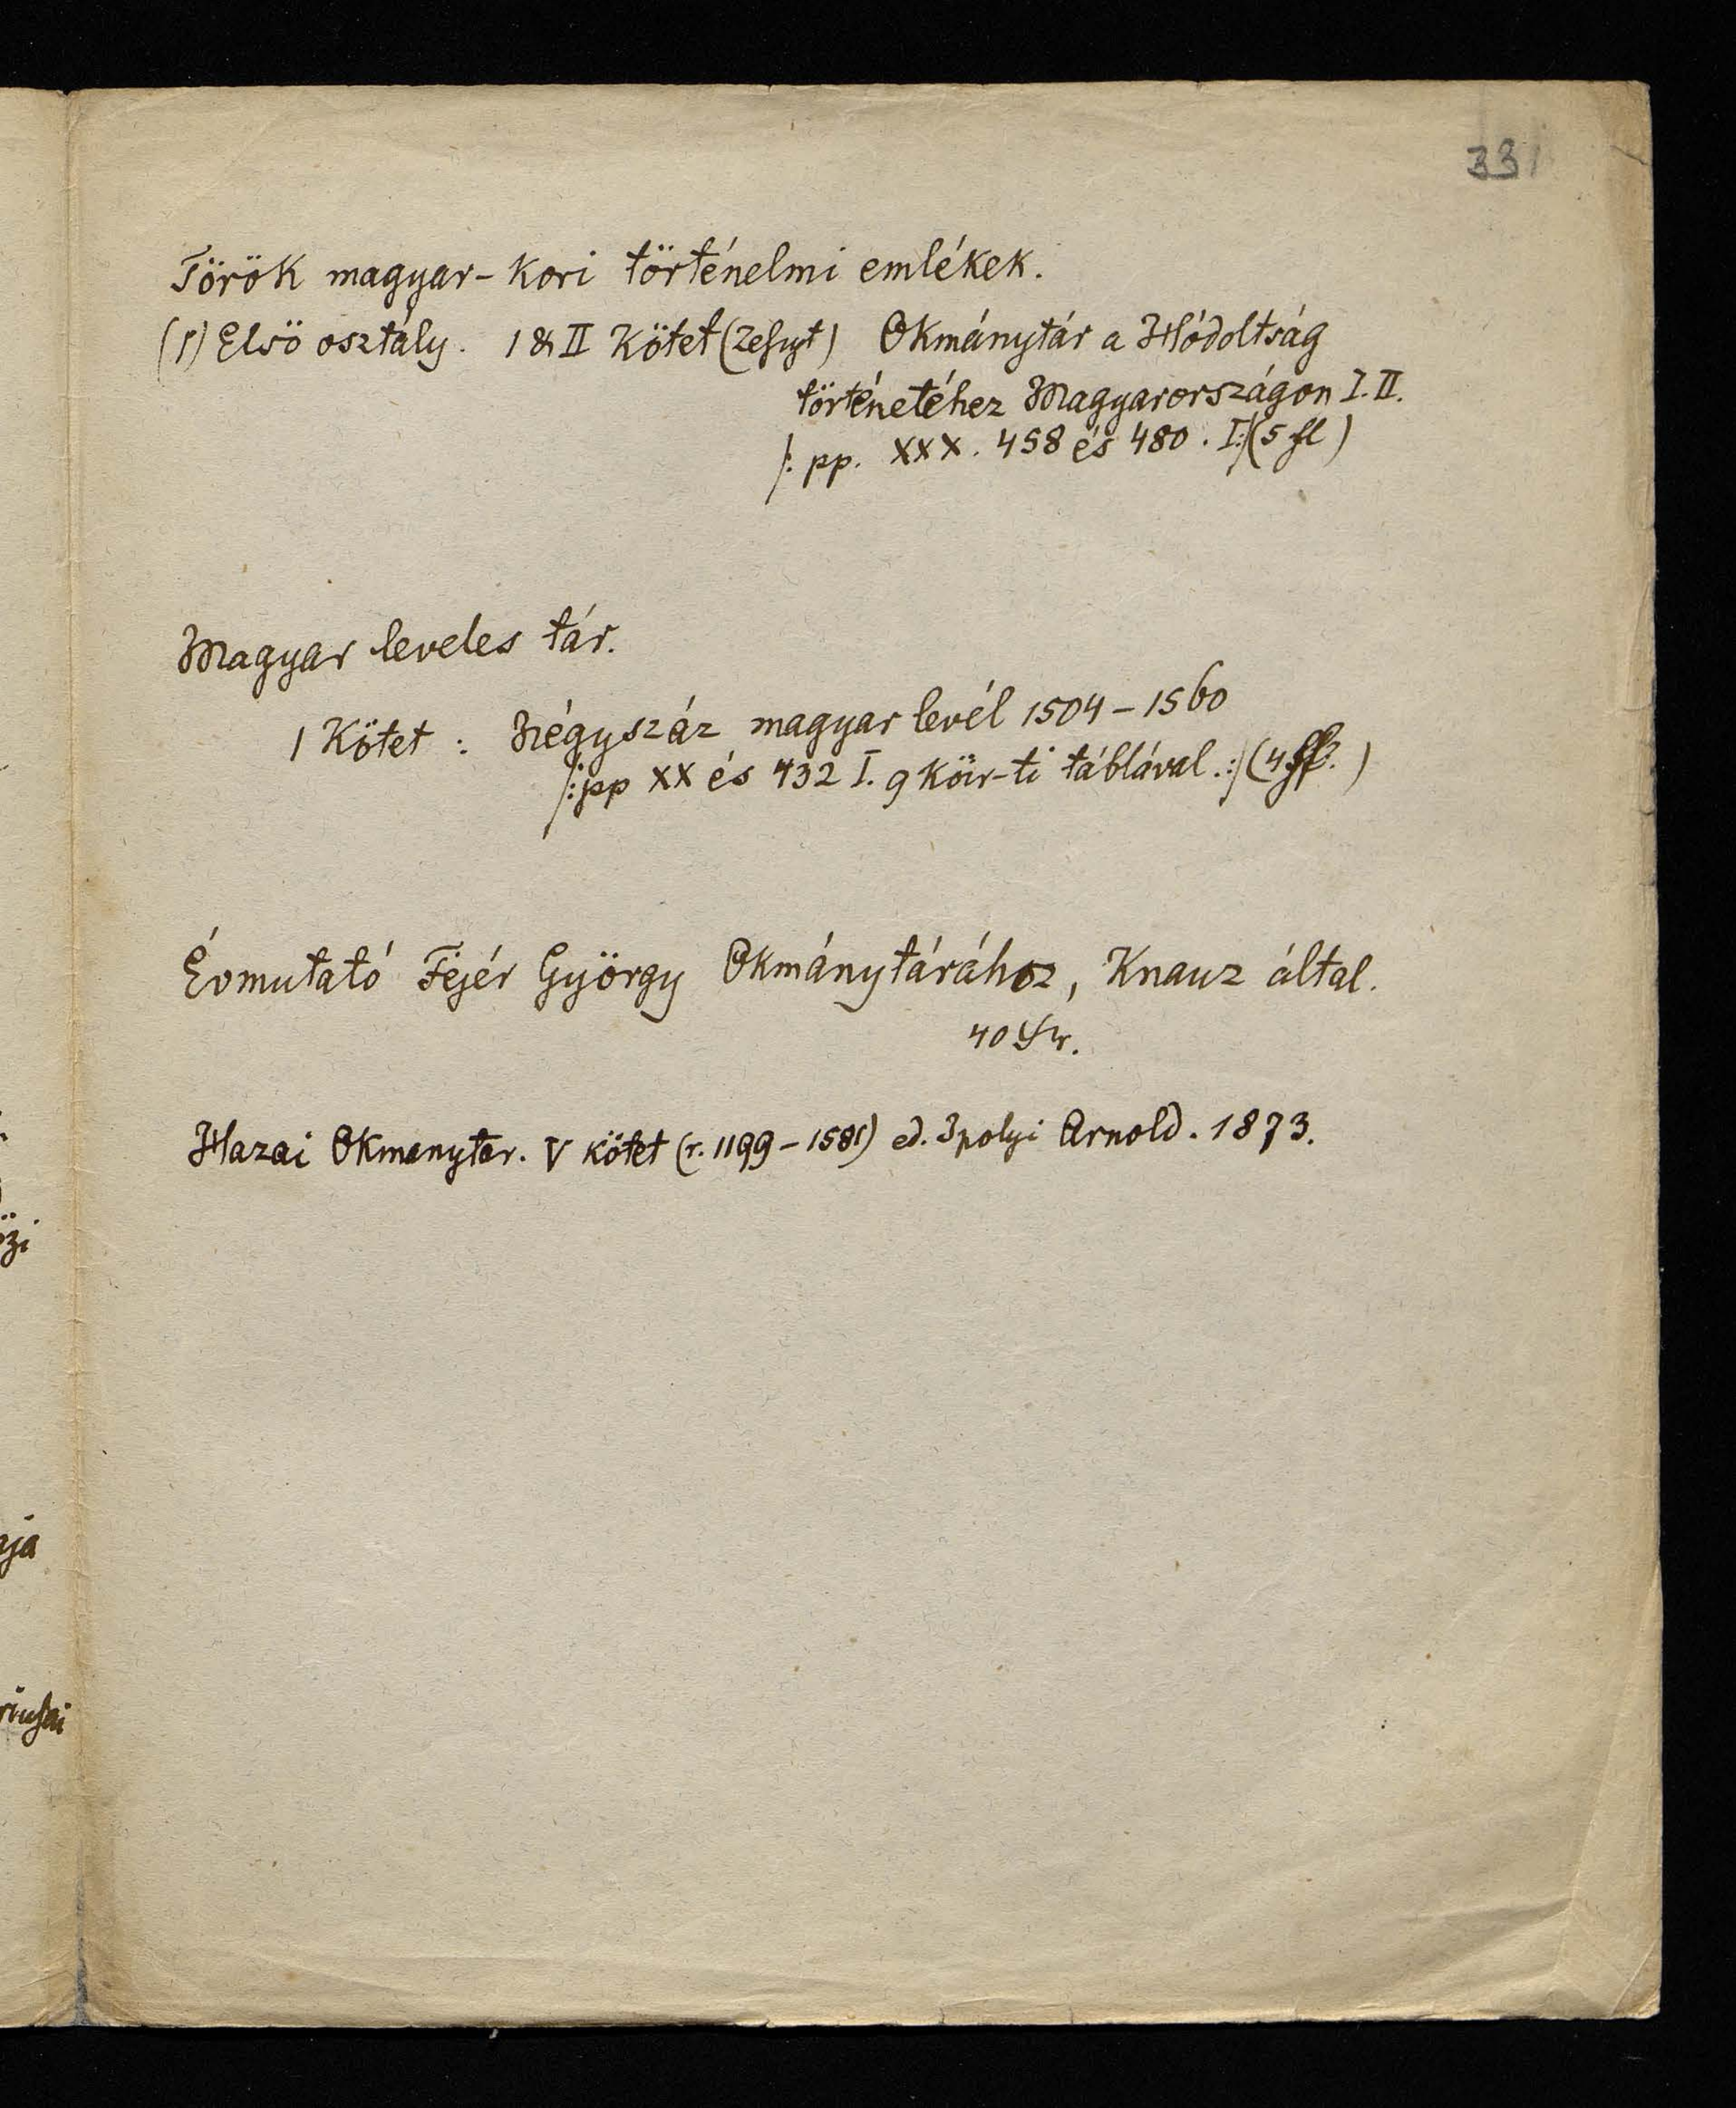 331
Török magyar-kori történelmi emlékek.
(1) Elsö osztály. 1 & II Kötet (Zeszyt) Okmánytár a Hódoltság
történetéhez Magyarországon I. II.
/: pp. XXX. 458 és 480. I:/ (5 fl)
Magyar leveles tár.
1 Kötet: Négyszáz magyar levél 1504–1560
/: pp XX és 432 I. 9 Kör-ti táblával. :/ (4 )
Évmutató Fejér György Okmánytárához, Knauz által.
40
Hazai Okmanytar. V kötet (r. 1199–1581) ed. Ipolyi Arnold. 1873.
özi
aja